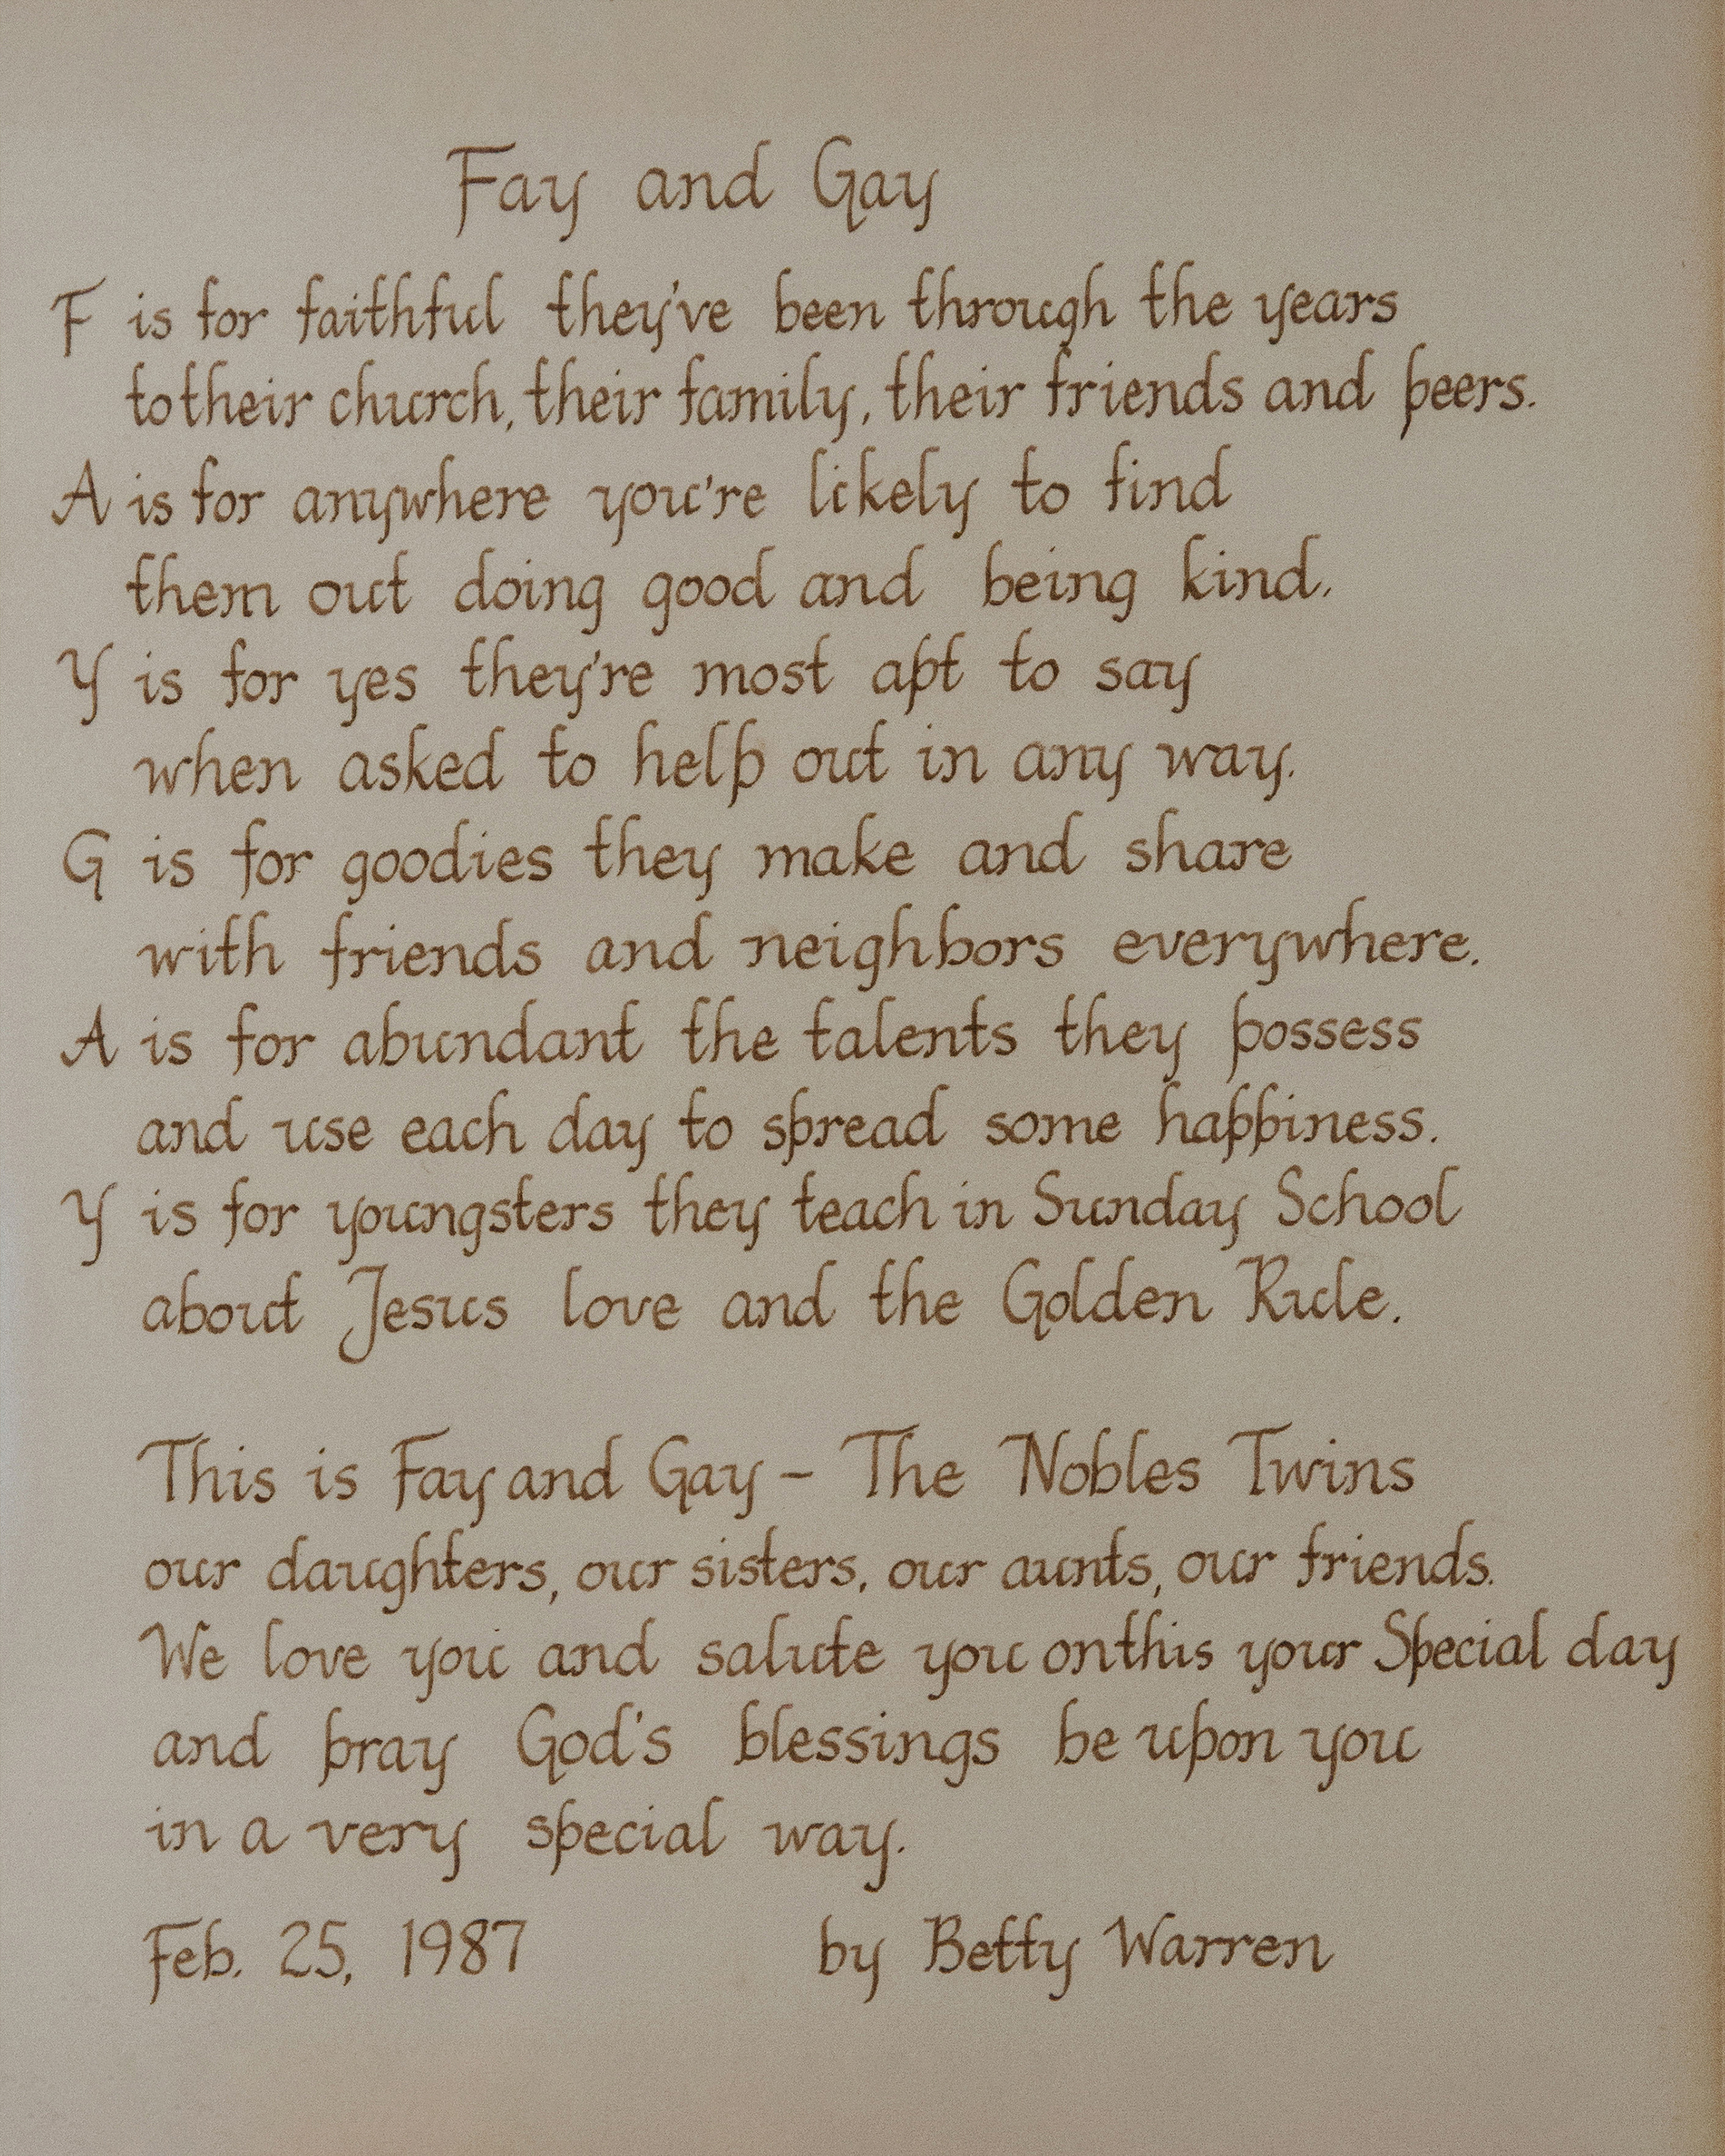 Fay and Gay
F is for faithful they've been through the years
to their church, their family, their friends and peers.
A is for anywhere you're likely to find
them out doing good and being kind.
Y is for yes they're most apt to say
when asked to help out in any way.
G is for goodies they make and share
with friends and neighbors everywhere.
A is for abundant the talents they possess
and use each day to spread some happiness.
Y is for youngsters they teach in Sunday School
about Jesus love and the Golden Rule.
This is Fay and Gay - The Nobles Twins
our daughters, our sisters, our aunts, our friends.
We love you and salute you on this your Special day
and pray God's blessings be upon you
in a very special way.
Feb. 25, 1987 by Betty Warren